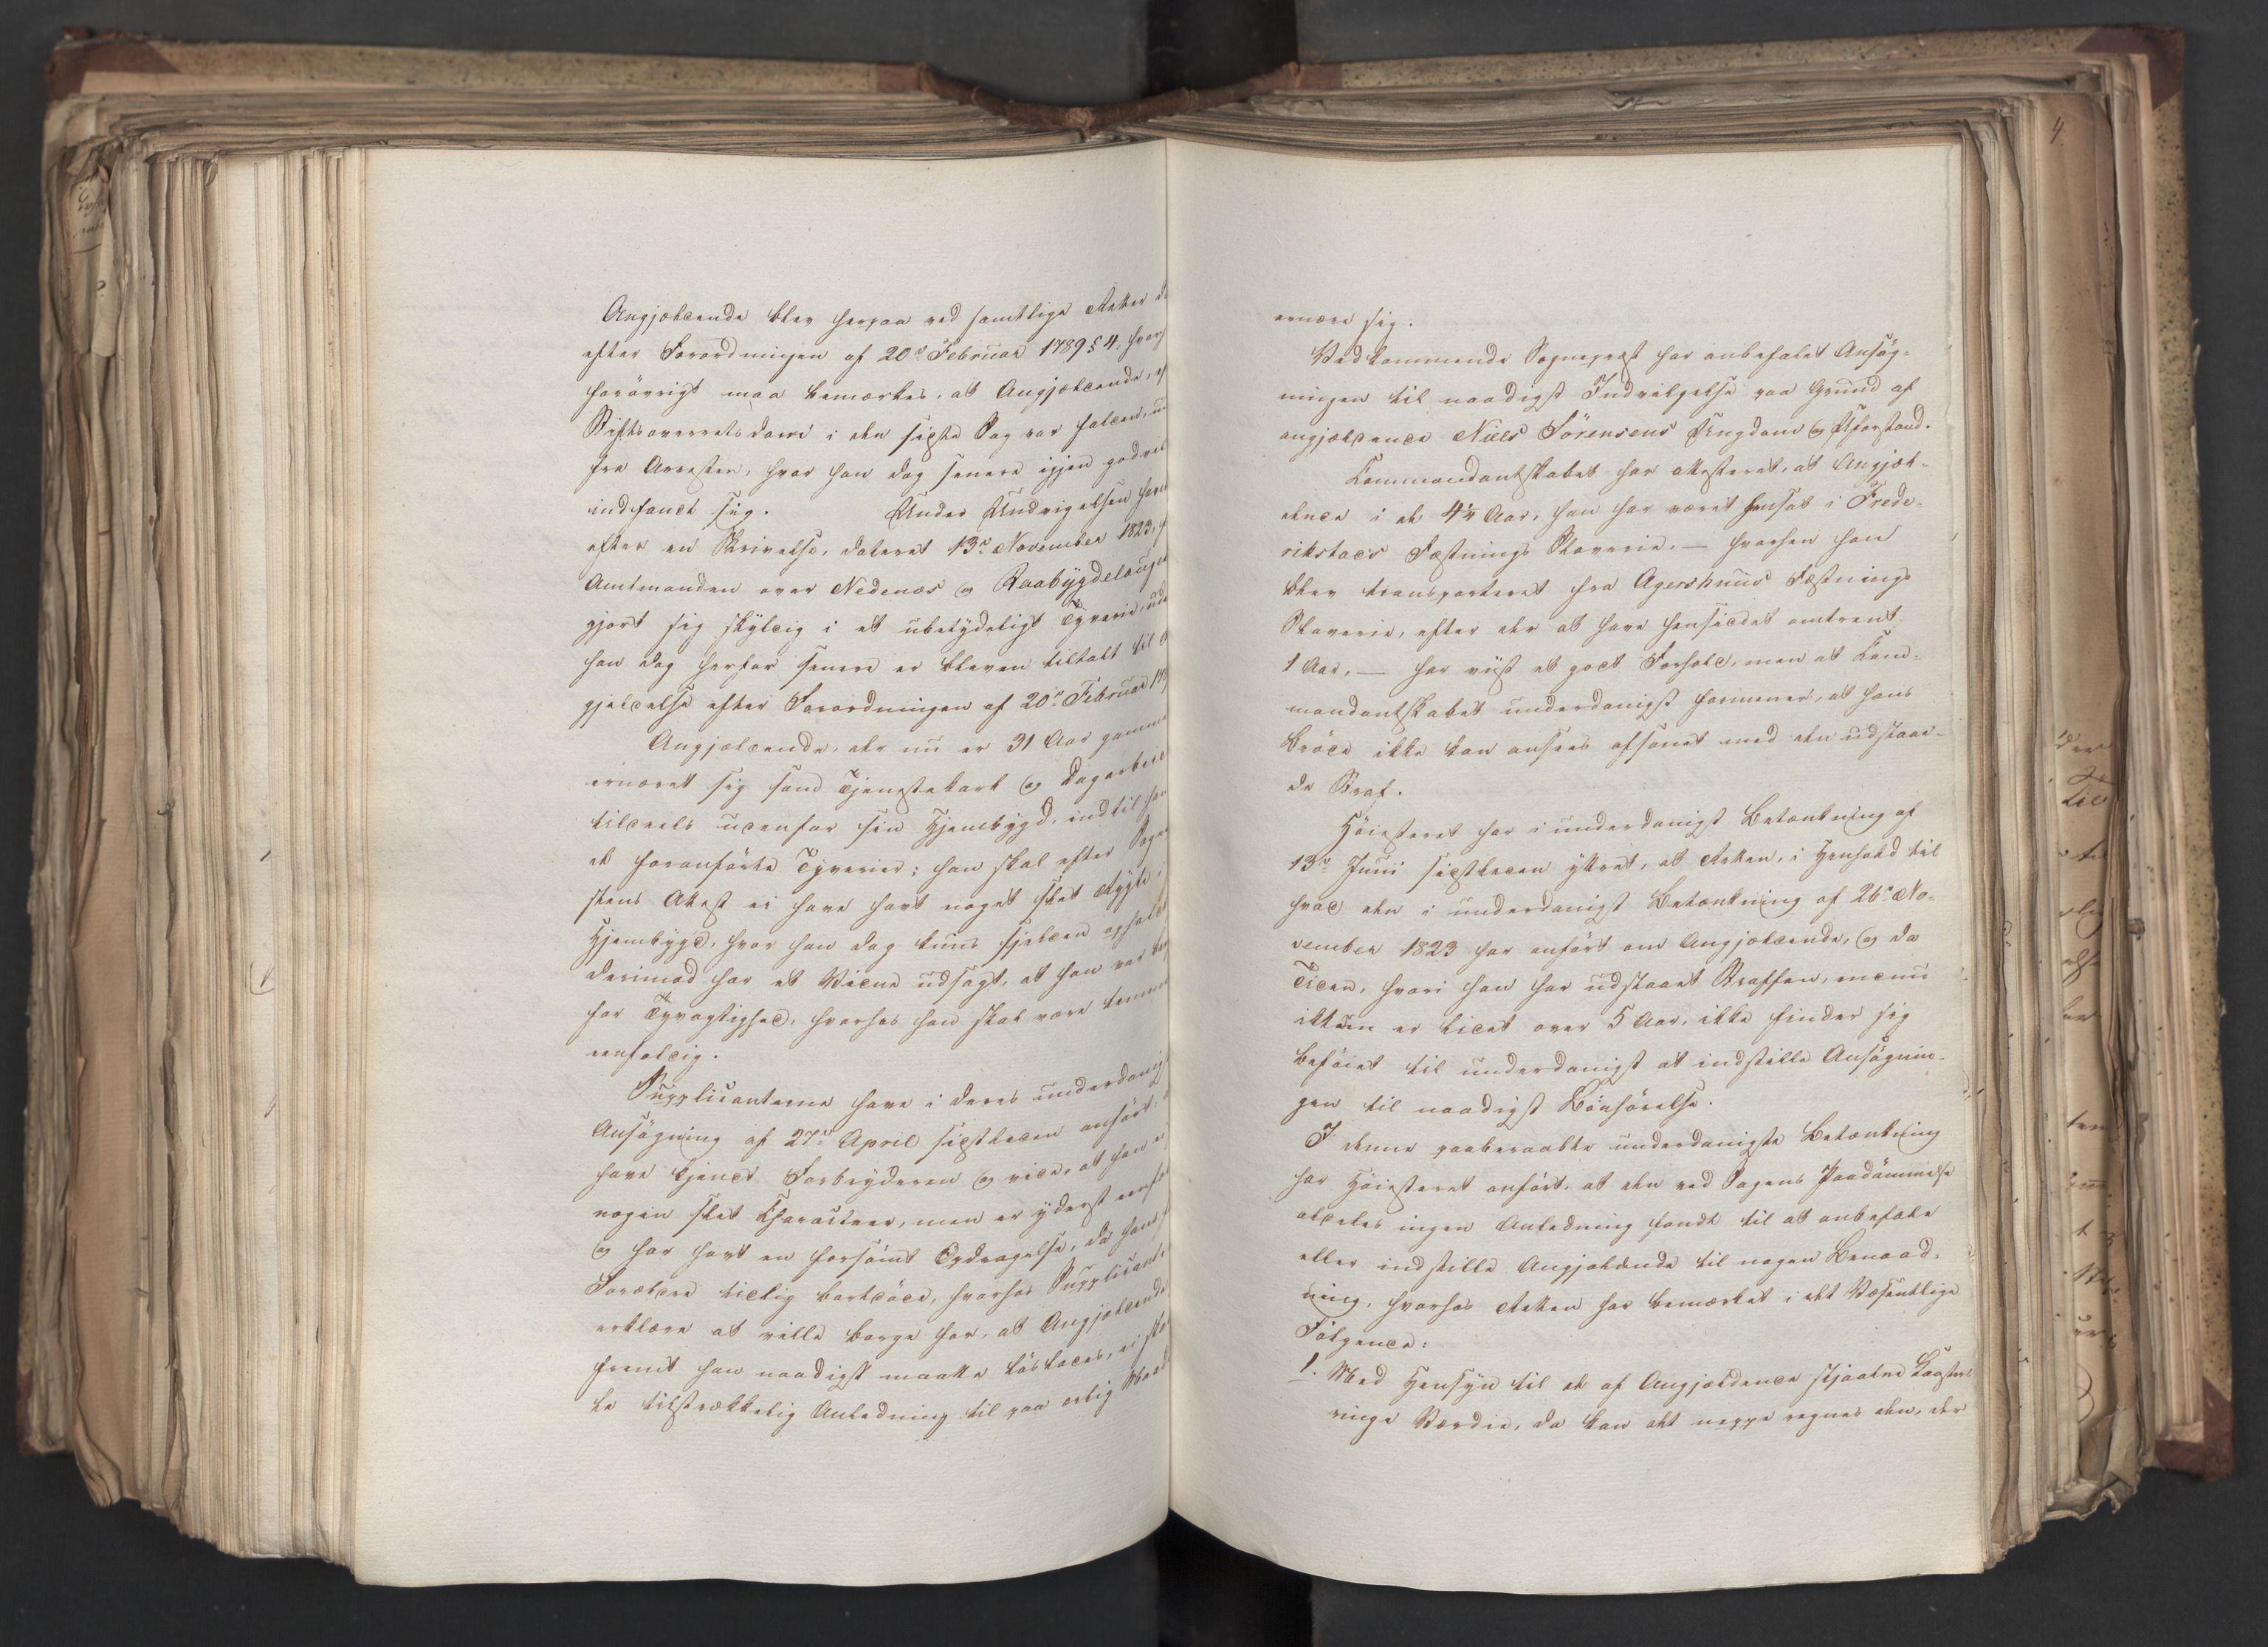 Angjældende blev herpaa ved samtlige Retter
efter Forordningen af 20de Februar 1789 § 4.
forövrigt maa bemærkes, at Angjældende,
Stiftsoverretsdom i den sidste Sag var falden,
fra Arresten, hvor han dog senere igjen
indfandt sig. Under Undvigelsen
efter en Skrivelse, dateret 13de November 1823,
Amtmanden over Nedenæs og Raabygdelauget
gjort sig skyldig i et ubetydeligt Tyverie,
han dog herfor senere er bleven tiltalt til
gjeldelse efter Forordningen af 20de Februar
Angjældende, der nu er 31 Aar
ernæret sig som Tjenestekarl og
tildeels udenfor sin Hjembygd, indtil
de foranførte Tyverier; han skal efter
stens Attest ei have havt noget slet Rygte i
Hjembygd, hvor han dog kuns sjelden
derimod har et Vidne udsagt, at han var
for Tyvagtighed, hvorhos han skal være
eenfoldig.
Supplicanterne have i deres underdanigst
Ansögning af 27de April sidstleden anfört,
have kjendt Forbryderen og vide, at han
nogen slet Charakteer, men er yderst
og har havt en forsömt Opdragelse, da hans
Forældre tidlig bortdöde, hvorhos
erklære at ville borge for, at Angjældende
fremt han naadigst maatte löslades, ei
le tilstrækkelig Anledning til paa ærlig
4.
ernære sig.
Vedkommende Sognepræst har anbefalet Ansög-
ningen til naadigst Indvilgelse paa Grund af
angjældende Niels Sörensens Ungdom og Uforstand.
Commandantskabet har attesteret, at Angjæl-
dende i de 4¼ Aar, han har været hensat i Frede-
rikstads Fæstnings Slaverie, — hvorhen han
blev transporteret fra Agershuus Fæstnings
Slaverie, efter der at have hensiddet omtrent
1 Aar, — har viist et godt Forhold, men at Com-
mandantskabet underdanigst formener, at hans
Bröde ikke kan ansees afsonet med den udstaae-
de Straf.
Höiesteret har i underdanigst Betænkning af
13de Juni sidstleden yttret, at Retten, i Henhold til
hvad den i underdanigst Betænkning af 26de No-
vember 1823 har anfört om Angjældende, og da
Tiden, hvori han har udstaaet Straffen, endnu
ikkun er lidet over 5 Aar, ikke finder sig
beföiet til underdanigst at indstille Ansögnin-
gen til naadigst Bönhörelse.
I denne paaberaabte underdanigste Betænkning
har Höiesteret anfört, at den ved Sagens Paadömmelse
aldeles ingen Anledning fandt til at anbefale
eller indstille Angjældende til nogen Benaad-
ning, hvorhos Retten har bemærket i det Væsentlige
Fölgende:
1. Med Hensyn til de af Angjældende stjaalne Kosters
ringe Værdie, da kan det neppe regnes den, der